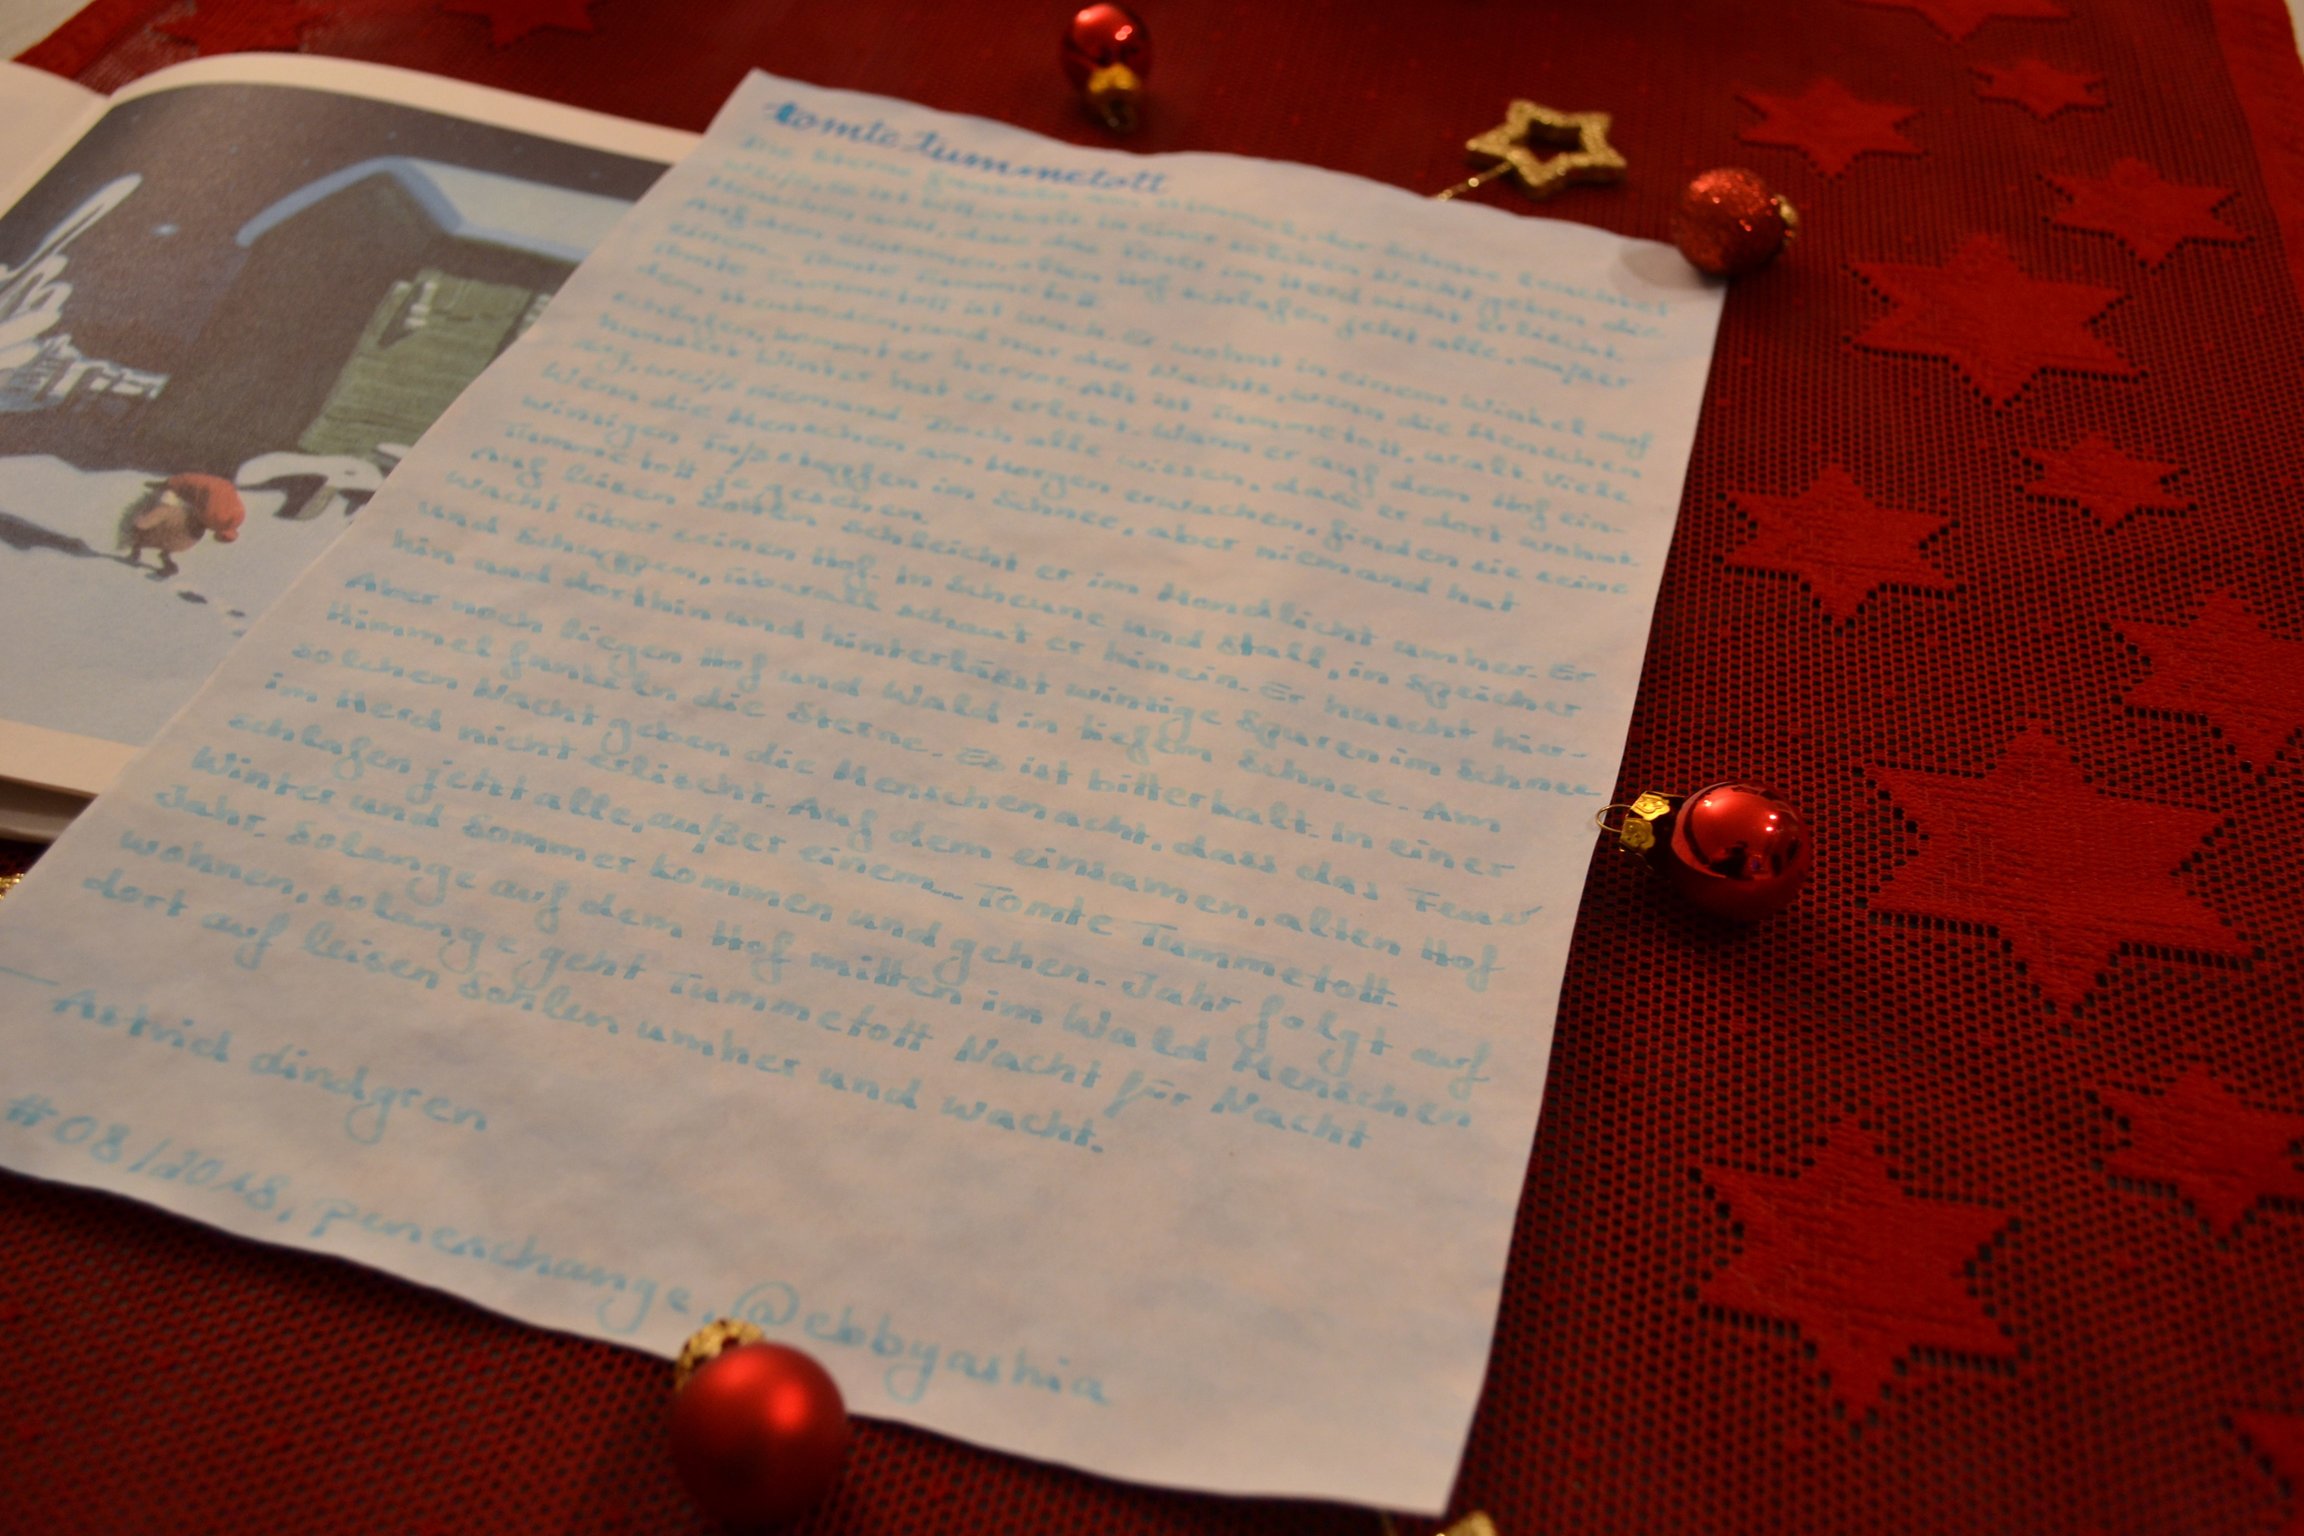 Tomte Tummetott
Die Sterne funkeln am Himmel, der Schnee leuchtet
weiß, es ist bitterkalt. In einer solchen Nacht geben die
Menschen acht, dass das Feuer im Herd nicht erlischt.
Auf dem einsamen, alten Hof schlafen jetzt alle, außer
einem... Tomte Tummetott.
Tomte Tummetott ist wach. Er wohnt in einem Winkel auf
dem Heuboden, und nur des Nachts, wenn die Menschen
schlafen, kommt er hervor. Alt ist Tummetott, uralt. Viele
hundert Winter hat er erlebt. Wann er auf dem Hof ein-
zog, weiß niemand. Doch alle wissen, dass er dort wohnt.
Wenn die Menschen am Morgen erwachen, finden sie seine
winzigen Fußstapfen im Schnee, aber niemand hat
Tummetott je gesehen.
Auf leisen Sohlen schleicht er im Mondlicht umher. Er
wacht über seinen Hof. In Scheune und Stall, in Speicher
und Schuppen, überall schaut er hinein. Er huscht hier-
hin und dorthin und hinterlässt winzige Spuren im Schnee
Aber noch liegen Hof und Wald in tiefem Schnee. Am
Himmel funkeln die Sterne. Es ist bitterkalt. In einer
solchen Nacht geben die Menschen acht, dass das Feuer
im Herd nicht erlischt. Auf dem einsamen, alten Hof
schlafen jetzt alle, außer einem... Tomte Tummetott.
Winter und Sommer kommen und gehen. Jahr folgt auf
Jahr. Solange auf dem Hof mitten im Wald Menschen
wohnen, solange geht Tummetott Nacht für Nacht
dort auf leisen Sohlen umher und wacht.
— Astrid Lindgren
#08/2018, penexchange, @ebbyashia